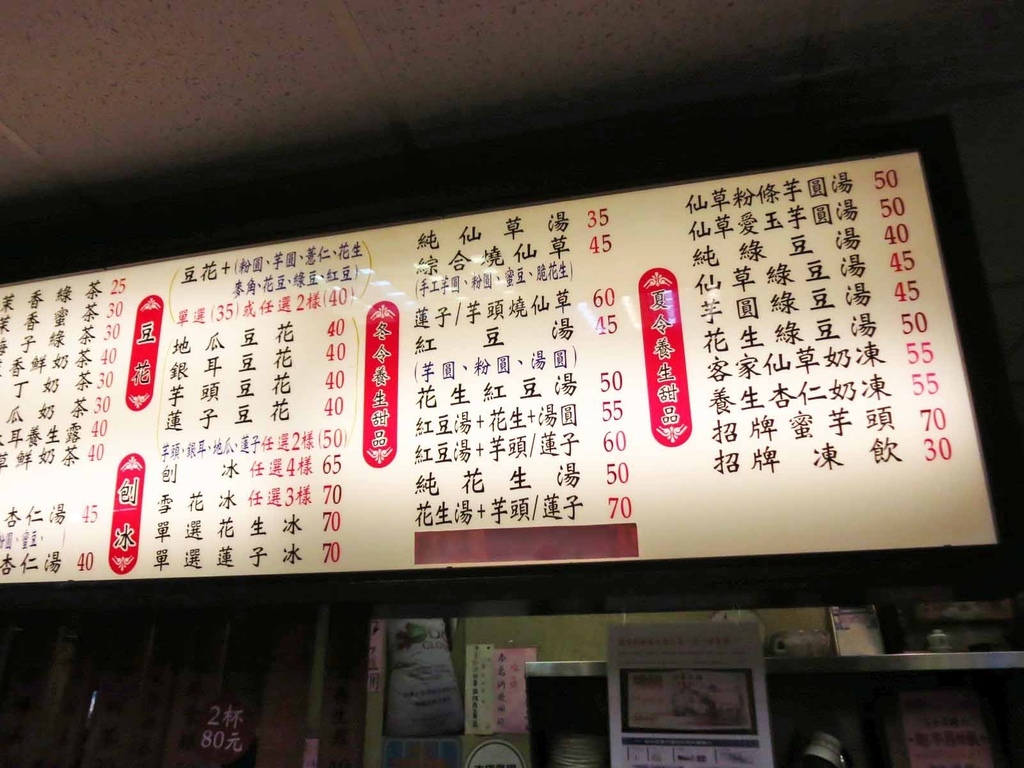 香綠茶 25
香蜜茶 30
子綠茶 30
香鮮奶茶 40
丁奶茶 30
瓜奶茶 30
耳養生露 40
草鮮奶茶 40
杏仁湯 45
粉圓、蜜豆、
杏仁湯 40
豆花
豆花+(粉圓、芋圓、薏仁、花生
麥角、花豆、綠豆、紅豆)
單選(35)或任選2樣(40)
地瓜豆花 40
銀耳豆花 40
芋頭豆花 40
蓮子豆花 40
芋頭、銀耳、地瓜、蓮子任選2樣(50)
刨冰
刨冰任選4樣 65
雪花冰任選3樣 70
單選花生冰 70
單選蓮子冰 70
冬令養生甜品
純仙草湯 35
綜合燒仙草 45
(手工芋圓、粉圓、蜜豆、脆花生)
蓮子/芋頭燒仙草 60
紅豆湯 45
(芋圓、粉圓、湯圓)
花生紅豆湯 50
紅豆湯+花生+湯圓 55
紅豆湯+芋頭/蓮子 60
純花生湯 50
花生湯+芋頭/蓮子 70
夏令養生甜品
仙草粉條芋圓湯 50
仙草愛玉芋圓湯 50
純綠豆湯 40
仙草綠豆湯 45
芋圓綠豆湯 45
花生綠豆湯 50
客家仙草奶凍 55
養生杏仁奶凍 55
招牌蜜芋頭 70
招牌凍飲 30
2杯
80元